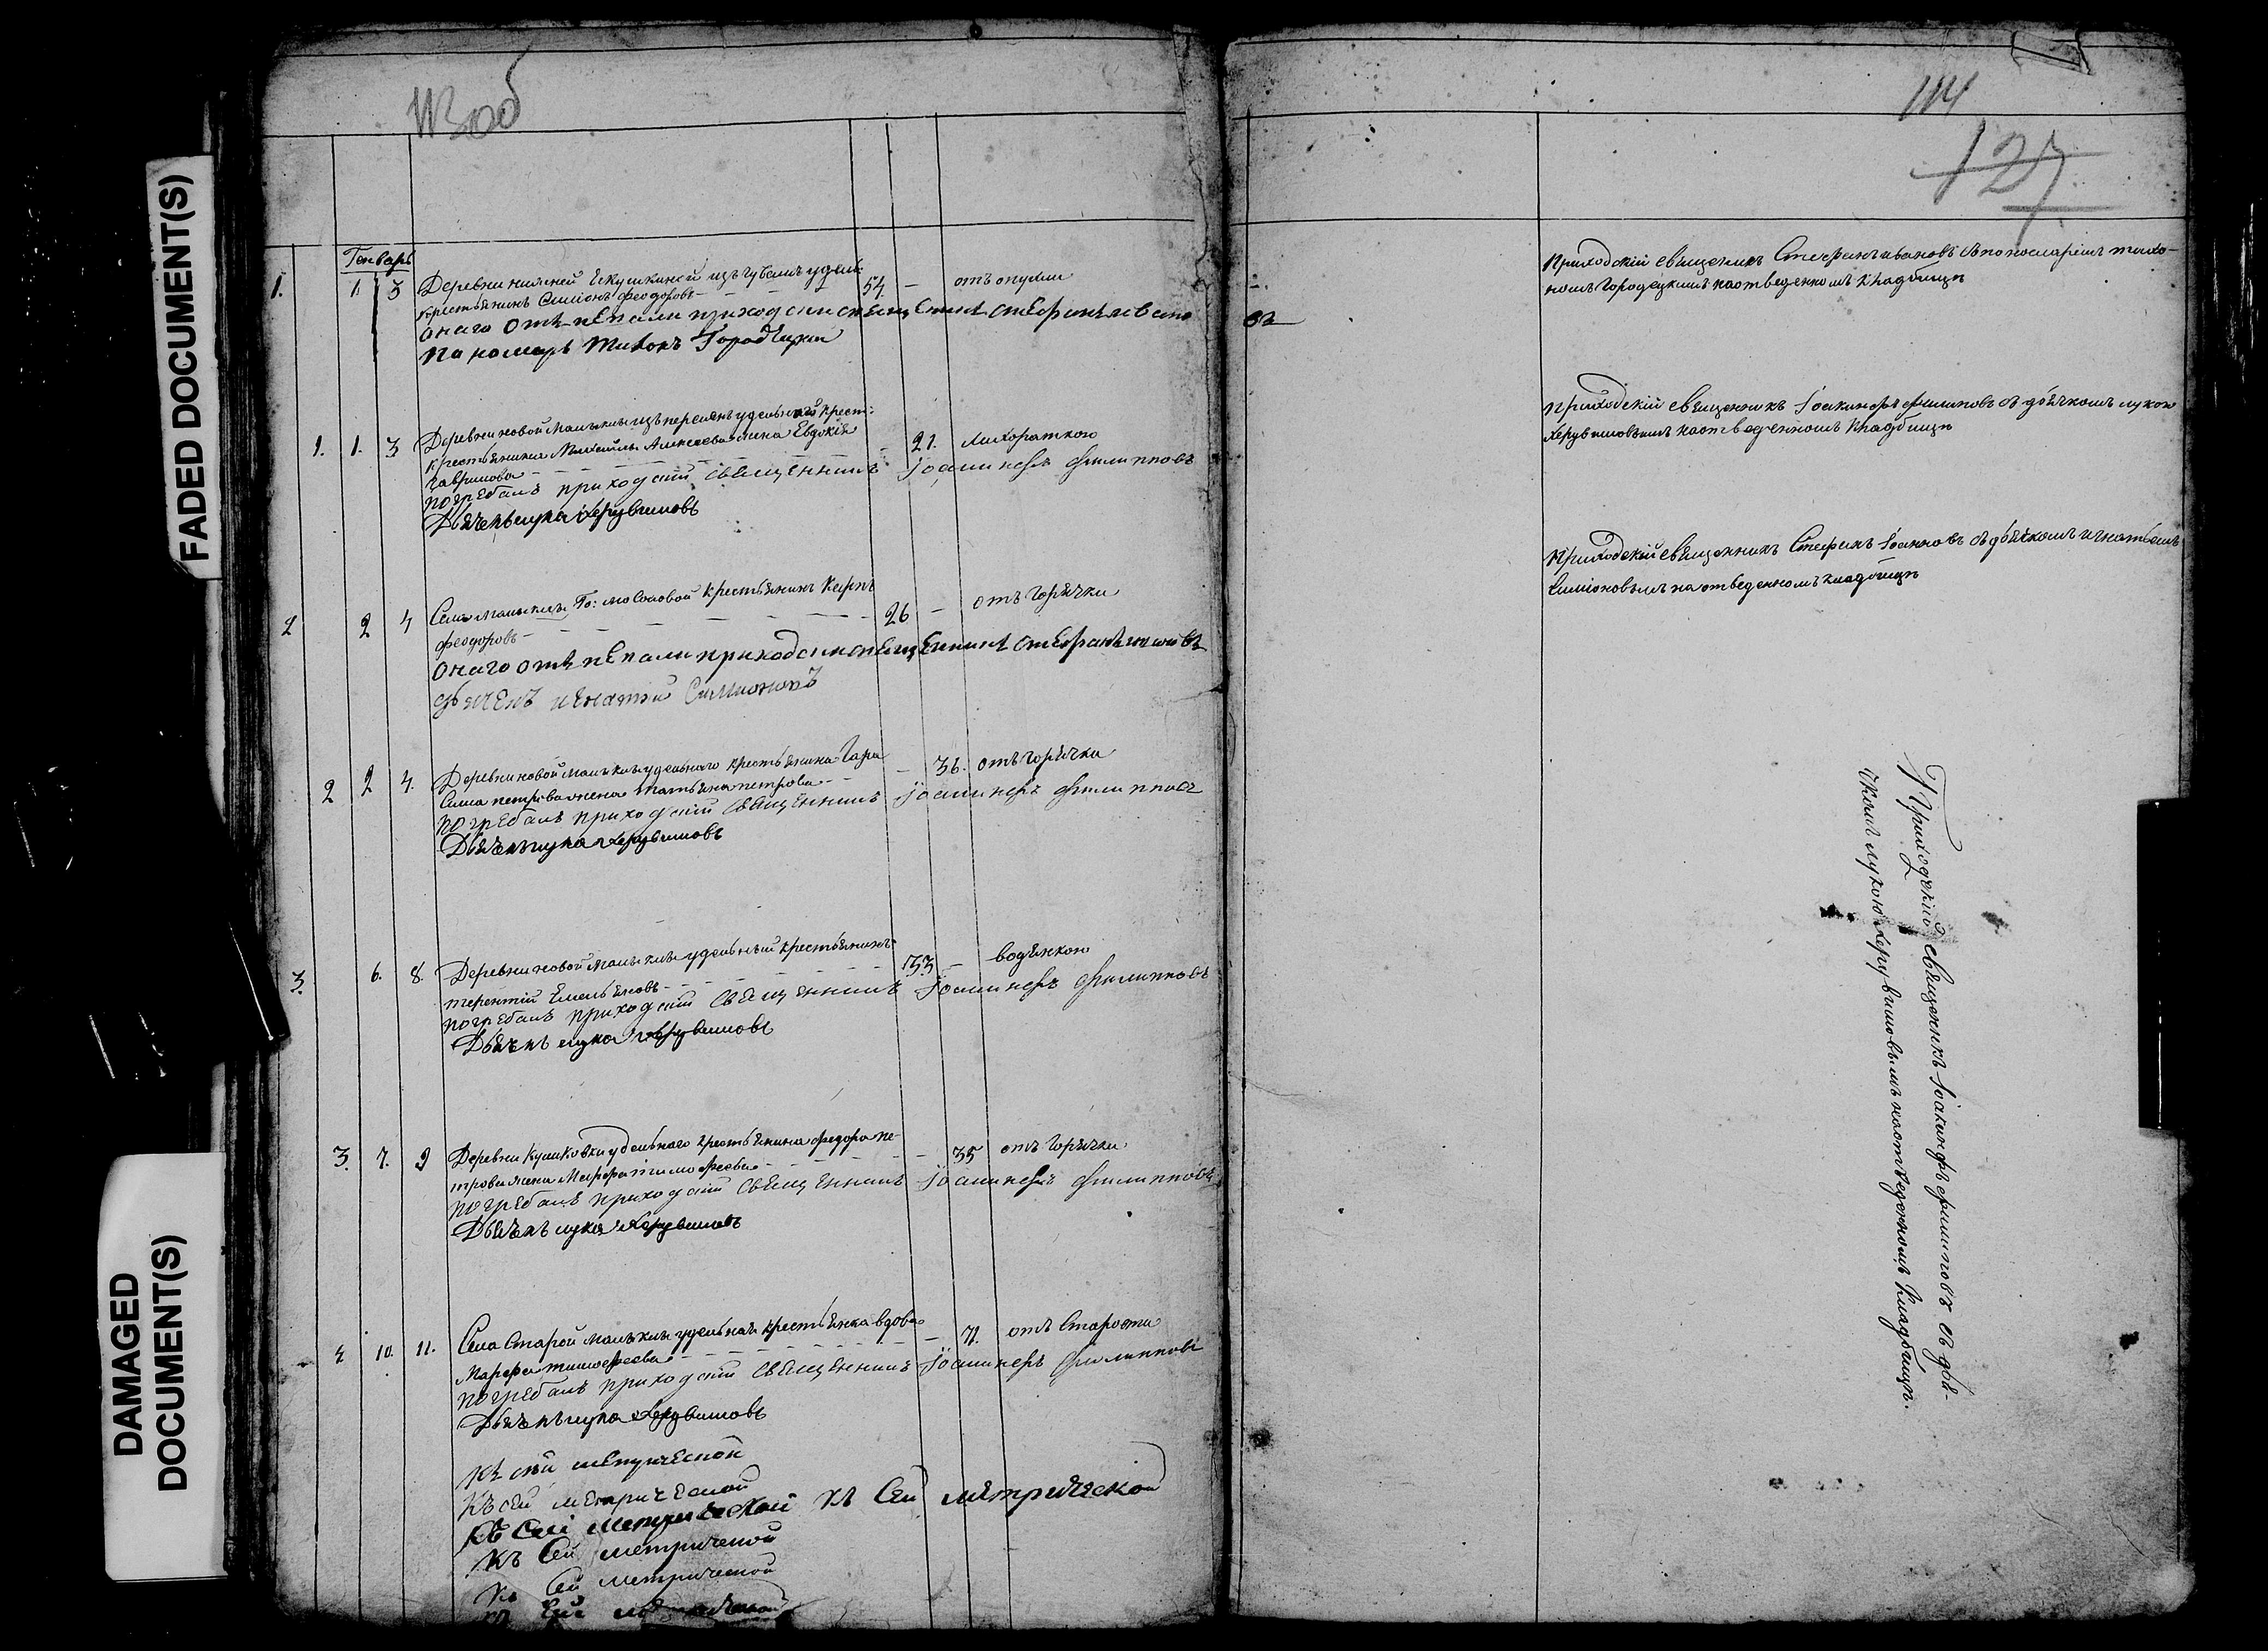 FADED DOCUMENT(S)
DAMAGED
DOCUMENT(S)
113 об
Генварь
1. 1. 3 Деревни нижней Екушкиной изъ чувашъ удель:
крестьянинъ Симіонъ Феодоровъ 54. – отъ опухли
онаго отъпевали приходски священникъ Стефанъ Ивано
въ
Пономарь Тихонъ Городецкий
1. 1. 3 Деревни новой Малыклы изъ
крестьянина Алексеева жена Евдокія – 21. лихораткою
Гаврилова
погребалъ приходскій священникъ Іоакинфъ Филипповъ
Дьячекъ лука Херувимовъ
2 2 4 Села Малыклы крестьянинъ 26 – отъ горячки
Феодоровъ
онаго отъпевали приходски священникъ Стефанъ
дьячекъ игнатий Симионовъ
2 2 4. Деревни новой малыклы удельнаго крестьянина Гара
сима петрова жена татьяна петрова – 36. отъ горячки
погребалъ приходскій священникъ Іоакинфъ Филипповъ
Дьячекъ лука Херувимовъ
3. 6. 8. Деревни новой малыклы удельный крестьянинъ
терентій Емельяновъ 33 – водянкою
погребалъ приходскій священникъ Іоакинфъ Филипповъ
Дьячекъ лука Херувимовъ
3. 7. 9 Деревни Кушковки удельнаго крестьянина федора пе-
трова жена Марфа тимофеева – 35 отъ горячки
погребалъ приходскій священникъ Іоакинфъ Филипповъ
Дьячекъ лука Херувимовъ
4 10. 11. Села Старой малыклы удельная крестьянка вдова
Марфа тимофеева – 71. отъ старости
погребалъ приходскій священникъ Іоакинфъ Филипповъ
Дьячекъ лука Херувимовъ
къ сей метрической
къ сей метрической
къ сей метрической къ сей метрической
къ сей метрической
къ сей метрической
114
127
Приходскій священникъ Стефанъ ивановъ съ пономаремъ тихо-
номъ Городецкимъ на отведенномъ кладбище
Приходскій священникъ Іоакинфъ филиповъ съ дьячкомъ лукою
Херувимовымъ на отведенномъ кладбище
Приходскій священникъ Стефанъ Іоанновъ съ дьячкомъ игнатьемъ
Симіоновымъ на отведенномъ кладбище
Приходскій священникъ Іоакинфъ филиповъ съ дья-
чкомъ лукою херувимовымъ на отведенномъ кладбище.